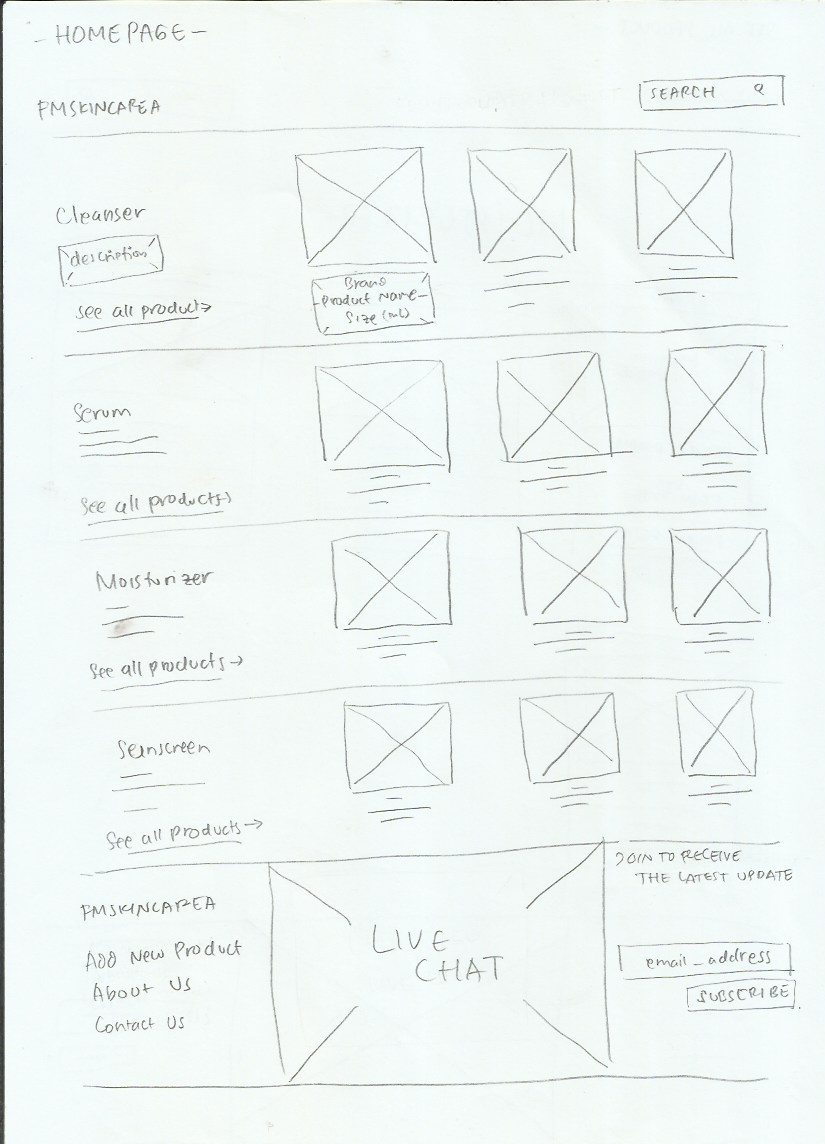 - HOMEPAGE -
FMSKINCAREA
SEARCH
Cleanser
description
see all products →
Brand
Product Name
Size (mL)
Serum
See all products →
Moisturizer
See all products →
Sunscreen
See all products →
FMSKINCAREA
Add New Product
About Us
Contact Us
LIVE
CHAT
JOIN TO RECEIVE
THE LATEST UPDATE
email_address
SUBSCRIBE